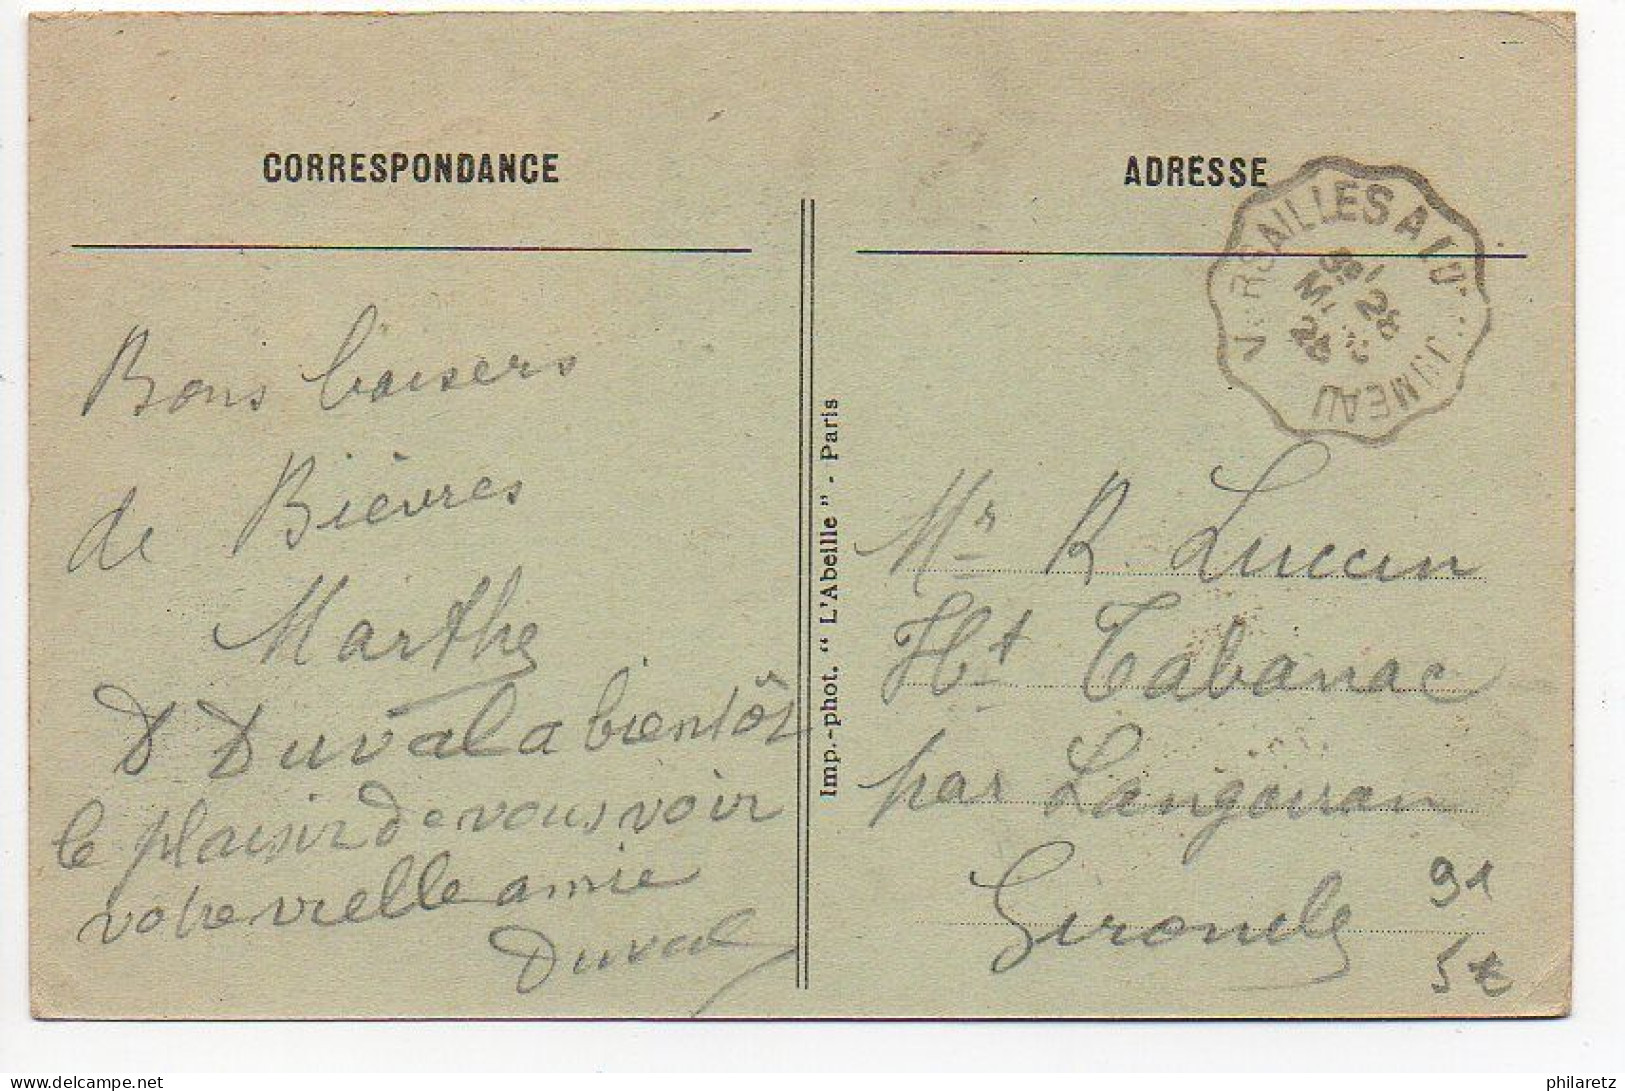 CORRESPONDANCE
Bons baisers
de Bièvres
Marthe
D Duval a bientôt
le plaisir de vous voir
votre vielle amie
Duval
Imp.-phot. “ L'Abeille ” - Paris
ADRESSE
VERSAILLES A JUVISY
Mr R. Luccin
Ht Tabanac
par Langoiran
Gironde
91
5€
philaretz
© Delcampe